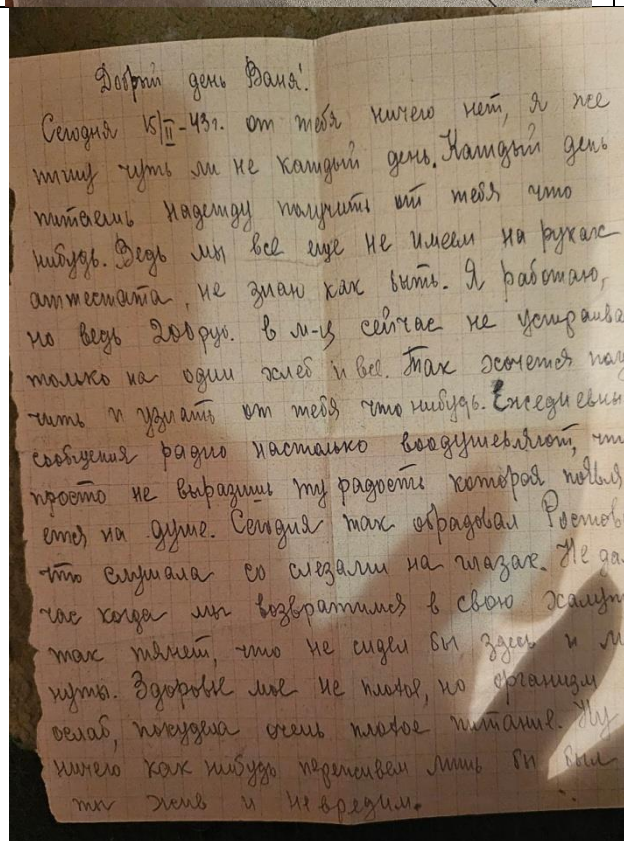 Добрый день Ваня!
Сегодня 15/II-43г. от тебя ничего нет, я же
пишу чуть ли не каждый день. Каждый день
питаешь надежду получить от тебя что
нибудь. Ведь мы все еще не имеем на руках
аттестата, не знаю как быть. Я работаю,
но ведь 200 руб. в м-ц сейчас не устраива
только на один хлеб и все. Так хочется полу
чить и узнать от тебя что нибудь. Ежедневны
сообщения радио настолько воодушевляют, что
просто не выразишь ту радость которая появля
ется на душе. Сегодня так обрадовал Ростов
что слушала со слезами на глазах. Не дал
час когда мы возвратимся в свою халуп
так тянет, что не сидел бы здесь и ми
нуты. Здоровье мое не плохое, но организм
ослаб, похудела очень плохое питание. Ну
ничего как нибудь переживем лишь бы был
ты жив и невредим.